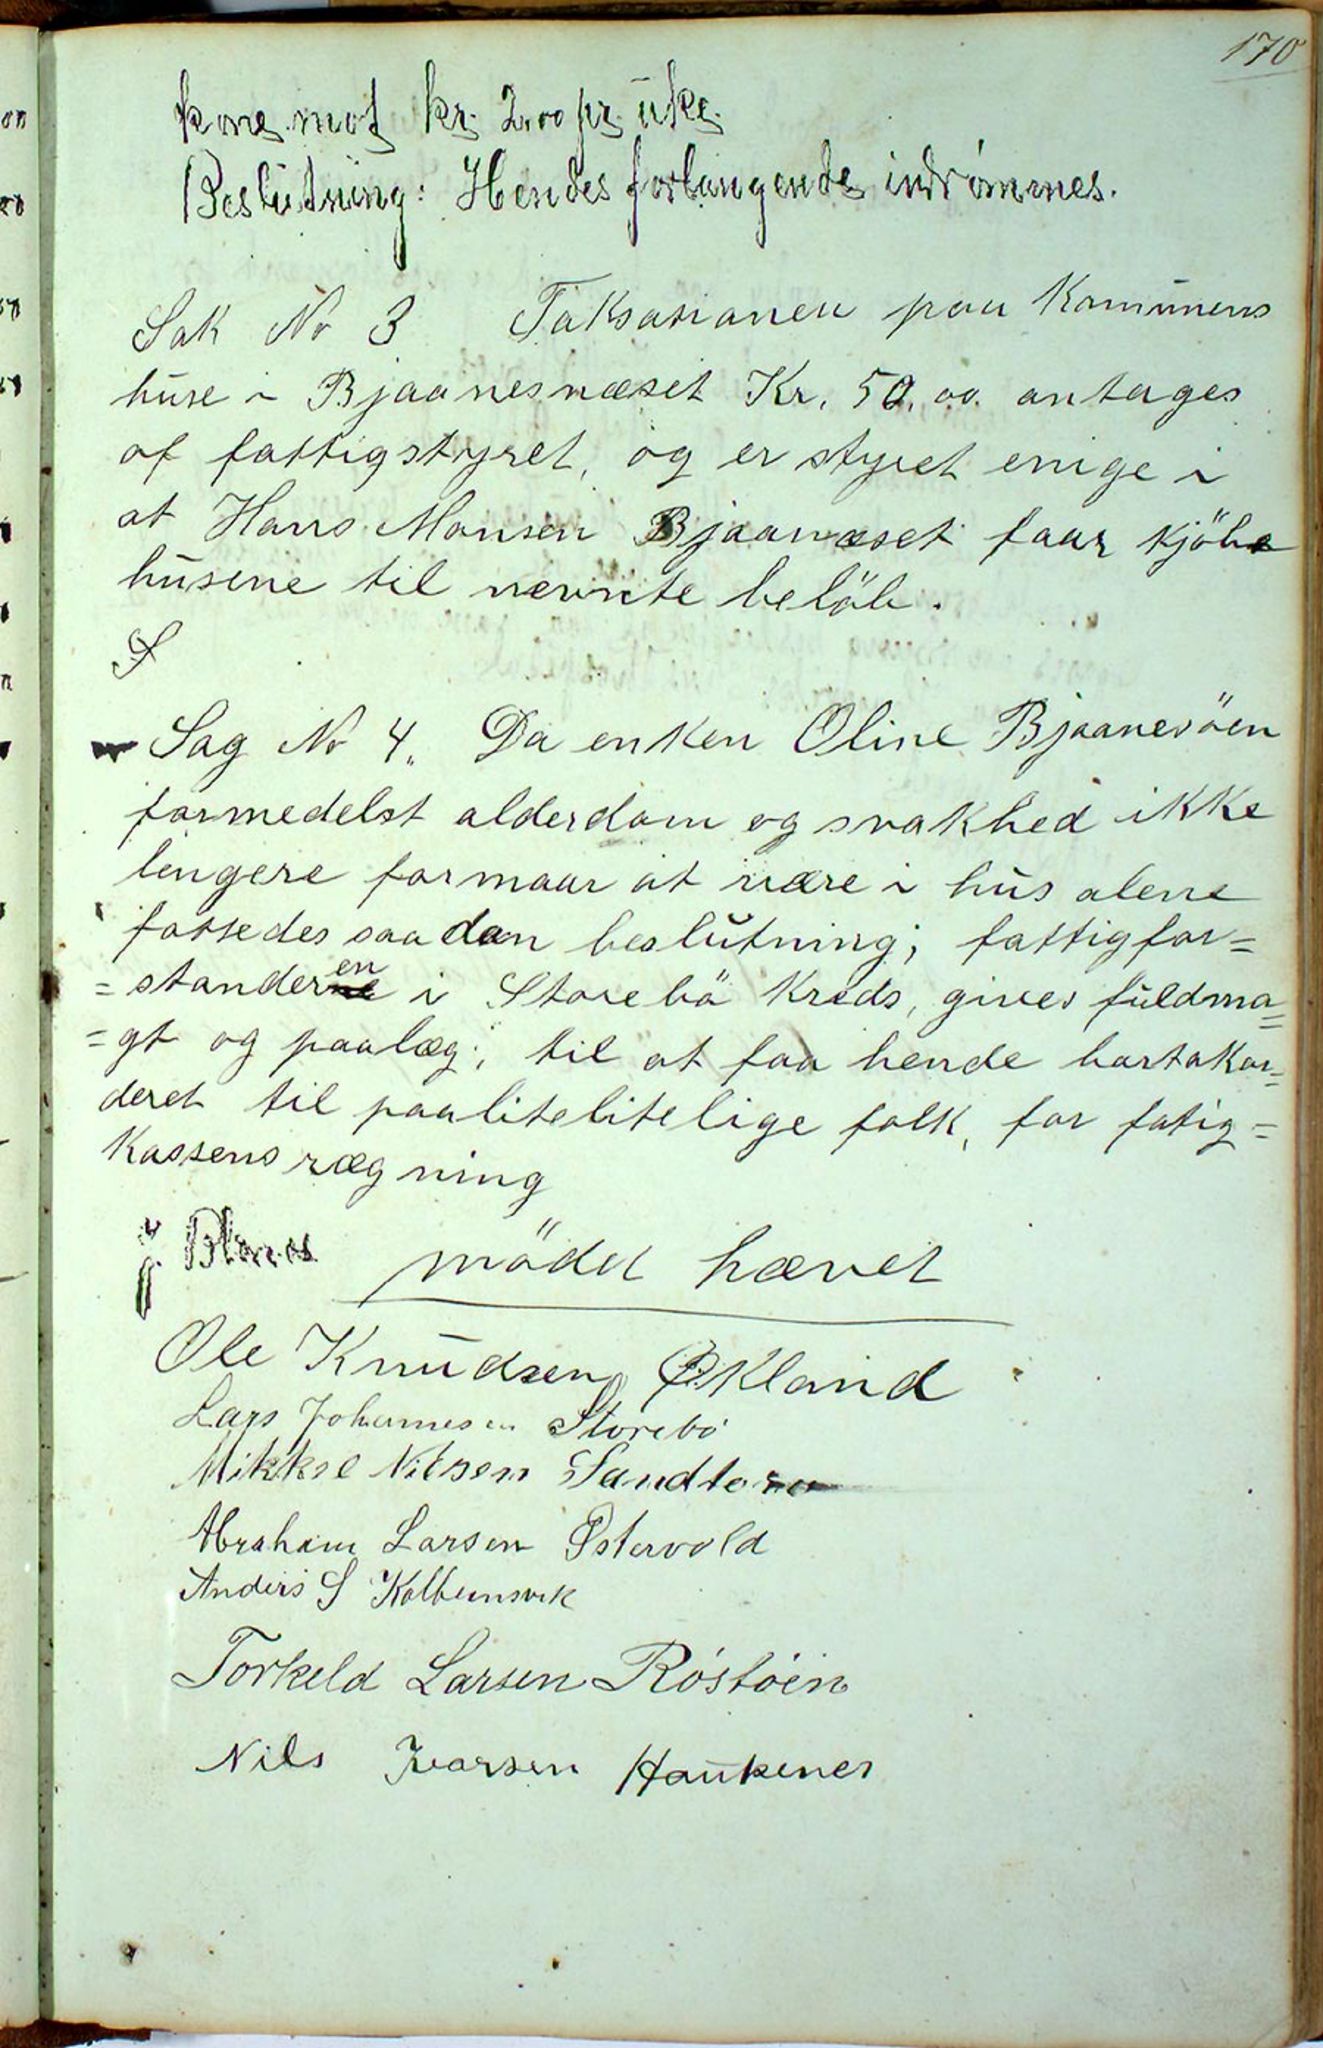 170
kone mot kr. 2.00 pr. uke.
Beslutning: Hendes forlangende indrømmes.
Sak No 3 Taksasionen paa Komunens
huse i Bjaanesnæset Kr. 50.00. antages
af fattigstyret, og er styret enige i
at Hans Monsen Bjaanæset faar kjöbe
husene til nævnte belöb.
S
Sag No 4. Da enken Oline Bjaanesöen
formedelst alderdom og svakhed ikke
lengere formaar at være i hus alene
fattedes saadan beslutning; fattigfor=
=standeren i Storebö Kreds, gives fuldma=
=gt og paalæg; til at faa hende bortakor=
deret til paalitelitelige folk, for fatig=
Kassens rægning
mödet hævet
Ole Knudsen Økland
Lars Johannesen Storebö
Mikkel Nilsen Sandtorv
Abraham Larsen Østervold
Anders S Kolbeinsvik
Torkeld Larsen Röstöen
Nils Ivarsen Haukenes